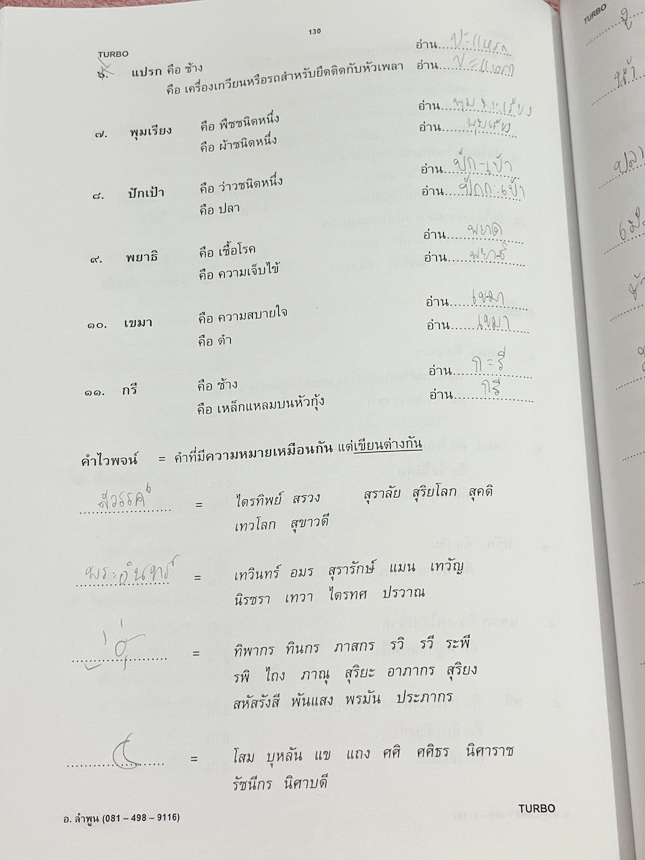 130
TURBO
๖. แปรก คือ ช้าง อ่าน ปะ-แหรก
คือ เครื่องเกวียนหรือรถสำหรับยึดติดกับหัวเพลา อ่าน
๗. พุมเรียง คือ พืชชนิดหนึ่ง อ่าน
คือ ผ้าชนิดหนึ่ง อ่าน
๘. ปักเป้า คือ ว่าวชนิดหนึ่ง อ่าน ปัก-เป้า
คือ ปลา อ่าน ปักกะ-เป้า
๙. พยาธิ คือ เชื้อโรค อ่าน พยาด
คือ ความเจ็บไข้ อ่าน
๑๐. เขมา คือ ความสบายใจ อ่าน เขมา
คือ ดำ อ่าน เขมา
๑๑. กรี คือ ช้าง อ่าน กะรี
คือ เหล็กแหลมบนหัวกุ้ง อ่าน กรี
คำไวพจน์ = คำที่มีความหมายเหมือนกัน แต่เขียนต่างกัน
สวรรค์ = ไตรทิพย์ สรวง สุราลัย สุริยโลก สุคติ
เทวโลก สุขาวดี
พระอินทร์ = เทวินทร์ อมร สุรารักษ์ แมน เทวัญ
นิรชรา เทวา ไตรทศ ปรวาณ
= ทิพากร ทินกร ภาสกร รวิ รวี ระพี
รพิ ไถง ภาณุ สุริยะ อาภากร สุริยง
สหัสรังสี พันแสง พรมัน ประภากร
= โสม บุหลัน แข แถง ศศิ ศศิธร นิศาราช
รัชนีกร นิศาบดี
อ. ลำพูน (081 – 498 – 9116) TURBO
TURBO